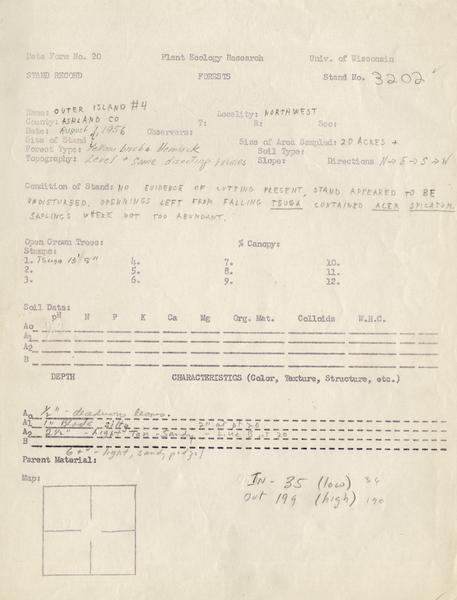 Data Form No. 20 Plant Ecology Research Univ. of Wisconsin
STAND RECORD FORESTS Stand No. 3202
Name: OUTER ISLAND #4 Locality: NORTHWEST
County: ASHLAND CO T: R: Sec:
Date: August 1, 1956 Observers:
Size of Stand: Size of Area Sampled: 20 ACRES +
Forest Type: Yellow birch & Hemlock Soil Type:
Topography: Level + Some directing ravines Slope: Directions N→E→S→W
Condition of Stand: NO EVIDENCE OF CUTTING PRESENT, STAND APPEARED TO BE
UNDISTURBED. OPENNINGS LEFT FROM FALLING TSUGA CONTAINED ACER SPICATUM.
SAPLINGS WHERE NOT TOO ABUNDANT.
Open Grown Trees: % Canopy:
Stumps:
1. Tsuga 13' 8" 4. 7. 10.
2. 5. 8. 11.
3. 6. 9. 12.
Soil Data:
pH N P K Ca Mg Org. Mat. Colloids W.H.C.
Ao
A1
A2
B
DEPTH CHARACTERISTICS (Color, Texture, Structure, etc.)
Ao ½" - leaves.
A1 1" Black silty 2" at pt 20
A2 2½" - light Tan - Sandy at 20
B 6+" - light, sandy
Parent Material:
Map: IN - 35 (low) 34
Out 199 (high) 190